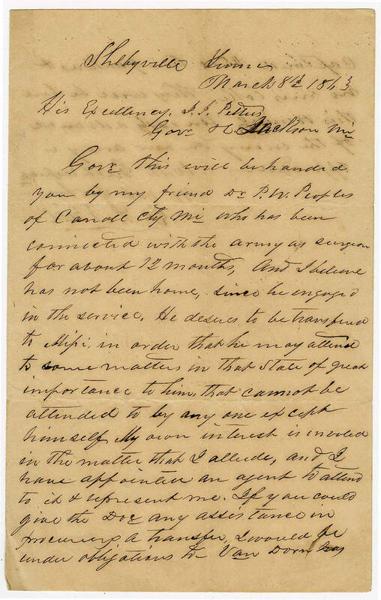 Shelbyville Tenn
March 8th 1863
His Excellency, J. J. Pettus
Gov &c Jackson Mi
Gov. this will be handed
you by my friend Dr P. W. Peoples
of Carroll Cty Mi who has been
connected with the army as surgeon
for about 12 months, And I believe
has not been home, since he engaged
in the service. He desires to be transferred
to Missi. in order that he may attend
to some matters in that State of great
importance to him, that cannot be
attended to by any one except
himself. My own interest is involved
in the matter that I allude, and I
have appointed an agent to attend
to it & represent me. If you could
give the Doc any assistance in
procuring a transfer, I would be
under obligations to Van Dorn has